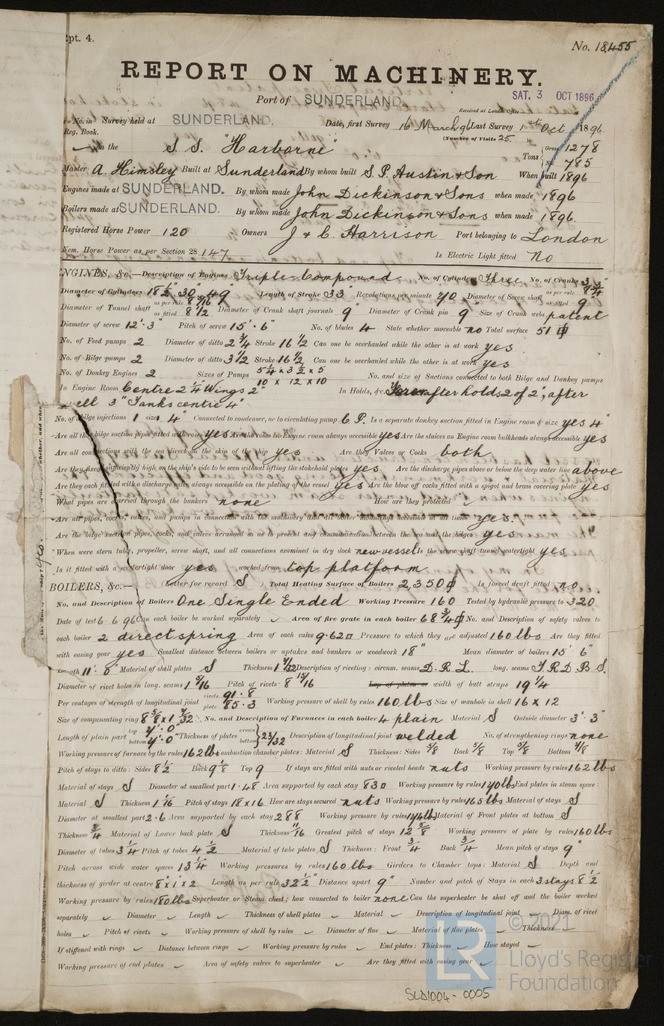 Rpt. 4.
No. 18455
REPORT ON MACHINERY.
Port of SUNDERLAND.
SAT. 3 OCT 1896
Received at London Office
No. in Survey held at SUNDERLAND. Date, first Survey 16 March 96 Last Survey 1st Oct 1896
Reg. Book. (Number of Visits 25
on the S.S. "Harborne" Tons Gross 1278
Net 785
Master A. Himsley Built at Sunderland By whom built S.P. Austin & Son When built 1896
Engines made at SUNDERLAND. By whom made John Dickinson & Sons when made 1896
Boilers made at SUNDERLAND. By whom made John Dickinson & Sons when made 1896
Registered Horse Power 120 Owners J & C Harrison Port belonging to London
Nom. Horse Power as per Section 28 147 Is Electric Light fitted No
ENGINES, &c.—Description of Engines Triple Compound No. of Cylinders Three No. of Cranks 3
Diameter of Cylinders 18½ 30 49 Length of Stroke 33" Revolutions per minute 70 Diameter of Screw shaft as per rule as fitted 9"
Diameter of Tunnel shaft as per rule as fitted 8½ Diameter of Crank shaft journals 9" Diameter of Crank pin 9" Size of Crank webs patent
Diameter of screw 12'.3" Pitch of screw 15'.6" No. of blades 4 State whether moveable no Total surface 51
No. of Feed pumps 2 Diameter of ditto 2¾ Stroke 16½ Can one be overhauled while the other is at work yes
No. of Bilge pumps 2 Diameter of ditto 3½ Stroke 16½ Can one be overhauled while the other is at work yes
No. of Donkey Engines 2 Sizes of Pumps 5¼ x 3½ x 5 10 x 12 x 10 No. and size of Suctions connected to both Bilge and Donkey pumps
In Engine Room Centre 2¼ Wings 2" In Holds, &c. after holds 2 of 2", after
well 3" Tanks centre 4"
No. of bilge injections 1 size 4" Connected to condenser, or to circulating pump C.P. Is a separate donkey suction fitted in Engine room & size yes 4"
Are all the bilge suction pipes fitted with roses yes Are the roses in Engine room always accessible yes Are the sluices on Engine room bulkheads always accessible yes
Are all connections with the sea direct on the skin of the ship yes Are they Valves or Cocks both
Are they fixed sufficiently high on the ship's side to be seen without lifting the stokehold plates yes Are the discharge pipes above or below the deep water line above
Are they each fitted with a discharge valve always accessible on the plating of the vessel yes Are the blow off cocks fitted with a spigot and brass covering plate yes
What pipes are carried through the bunkers none How are they protected
Are all pipes, cocks, valves, and pumps in connection with the machinery and all boiler mountings accessible at all times yes.
Are the bilge suction pipes, cocks, and valves arranged so as to prevent any communication between the sea and the bilges yes
When were stern tube, propeller, screw shaft, and all connections examined in dry dock new vessel Is the screw shaft tunnel watertight yes
Is it fitted with a watertight door yes worked from top platform
BOILERS, &c.— Letter for record S Total Heating Surface of Boilers 2350 Is forced draft fitted no
No. and Description of Boilers One Single Ended Working Pressure 160 Tested by hydraulic pressure to 320
Date of test 6.6.96 Can each boiler be worked separately Area of fire grate in each boiler 68¾ No. and Description of safety valves to
each boiler 2 direct spring Area of each valve 9.62 Pressure to which they are adjusted 160 lbs Are they fitted
with easing gear yes Smallest distance between boilers or uptakes and bunkers or woodwork 18" Mean diameter of boilers 15' 6"
Length 11'.0" Material of shell plates S Thickness 1 7/32 Description of riveting: circum. seams D.R.L. long. seams T.R.D.B.S.
Diameter of rivet holes in long. seams 1 5/16 Pitch of rivets 8 15/16 width of butt straps 19¼
Per centages of strength of longitudinal joint rivets 91.8 plate 85.3 Working pressure of shell by rules 160 lbs Size of manhole in shell 16 x 12
Size of compensating ring No. and Description of Furnaces in each boiler 4 plain Material S Outside diameter 3'.3"
Length of plain part top bottom Thickness of plates 23/32 Description of longitudinal joint welded No. of strengthening rings none
Working pressure of furnace by the rules 162 lbs Combustion chamber plates: Material S Thickness: Sides 5/8 Back 5/8 Top 5/8 Bottom
Pitch of stays to ditto: Sides 8½ Back 9" Top 9 If stays are fitted with nuts or riveted heads nuts Working pressure by rules 162 lbs
Material of stays S Diameter at smallest part 1.48 Area supported by each stay Working pressure by rules End plates in steam space:
Material S Thickness 1 1/16 Pitch of stays 18 x 16 How are stays secured nuts Working pressure by rules 165 lbs Material of stays S
Diameter at smallest part 2.6 Area supported by each stay 288 Working pressure by rules Material of Front plates at bottom S
Thickness ¾ Material of Lower back plate S Thickness 11/16 Greatest pitch of stays Working pressure of plate by rules 160 lbs
Diameter of tubes 3¼ Pitch of tubes 4½ Material of tube plates S Thickness: Front ¾ Back ¾ Mean pitch of stays 9"
Pitch across wide water spaces 13¼ Working pressures by rules 160 lbs Girders to Chamber tops: Material S Depth and
thickness of girder at centre 8 x 1 x 2 Length as per rule 32½ Distance apart 9" Number and pitch of Stays in each 3 stays 8½
Working pressure by rules 180 lbs Superheater or Steam chest; how connected to boiler none Can the superheater be shut off and the boiler worked
separately Diameter Length Thickness of shell plates Material Description of longitudinal joint Diam. of rivet
holes Pitch of rivets Working pressure of shell by rules Diameter of flue Material of flue plates Thickness
If stiffened with rings Distance between rings Working pressure by rules End plates: Thickness How stayed
Working pressure of end plates Area of safety valves to superheater Are they fitted with easing gear
© 2021
LR
Lloyd's Register
Foundation
SLD1004-0005